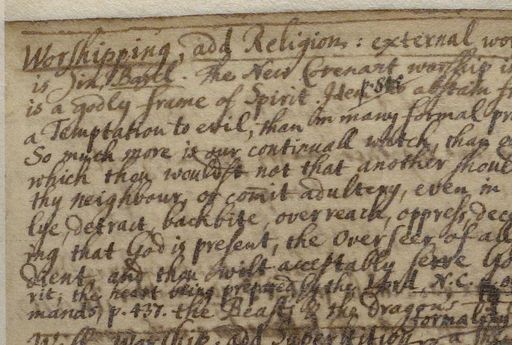 Worshipping, add Religion: external wor
is Sin, Barcl. The New Covenant worship is
is a Godly frame of Spirit abstain fr
a Temptation to evil, than in many formal pr
So much more is our continuall watch, than
which thou wouldst not that another shoul
thy neighbour, or comit adultery, even in
lye, detract, backbite, overreach, oppress, dece
ing that God is present, the Overseer of all
dient and thou wilt acceptably serve
rit, the heart being prepared by the Lord N.C.
mands, p. 437. the Beast, & the dragons
formality
Will Worship, add Superstition